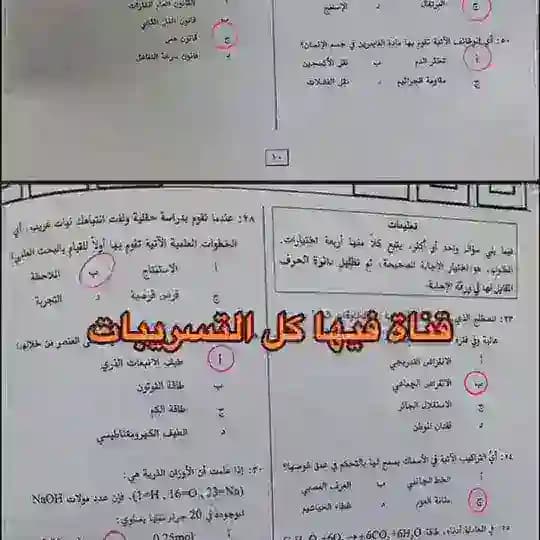 القانون العام للغازات
قانون الفعل الكتلي
ج قانون هس
د قانون سرعة التفاعل
ج البرتقال د الإسفنج
٥٠: أي الوظائف الآتية تقوم بها مادة الفايبرين في جسم الإنسان؟
أ تخثر الدم ب نقل الأكسجين
ج مقاومة الجراثيم د نقل الفضلات
١٠
تعليمات
فيما يلي سؤال واحد أو أكثر، يتبع كلاً منها أربعة اختيارات.
المطلوب، هو اختيار الإجابة الصحيحة، ثم تظليل دائرة الحرف
المقابل لها في ورقة الإجابة.
٢٣: المصطلح الذي
عالية وفي فترة
أ الانقراض التدريجي
ب الانقراض الجماعي
ج الاستغلال الجائر
د فقدان الموطن
٢٤: أيُّ التراكيب الآتية في الأسماك يسمح لها بالتحكم في عمق غوصها؟
أ الخط الجانبي ب العرف العصبي
ج مثانة العوم د غطاء الخياشيم
٢٥: في المعادلة أدناه، طاقة
٢٨: عندما تقوم بدراسة حقلية ولفت انتباهك نبات غريب، أي
الخطوات العلمية الآتية تقوم بها أولاً للقيام بالبحث العلمي؟
أ الاستنتاج ب الملاحظة
ج فرض فرضية د التجربة
قناة فيها كل التسريبات
العنصر من خلالها
أ طيف الانبعاث الذري
ب طاقة الفوتون
ج طاقة الكم
د الطيف الكهرومغناطيسي
٣٠: إذا علمت أن الأوزان الذرية هي:
(1=H , 16=O , 23=Na)، فإن عدد مولات NaOH
الموجودة في 20 جرام منها يساوي:
أ 0.25mol